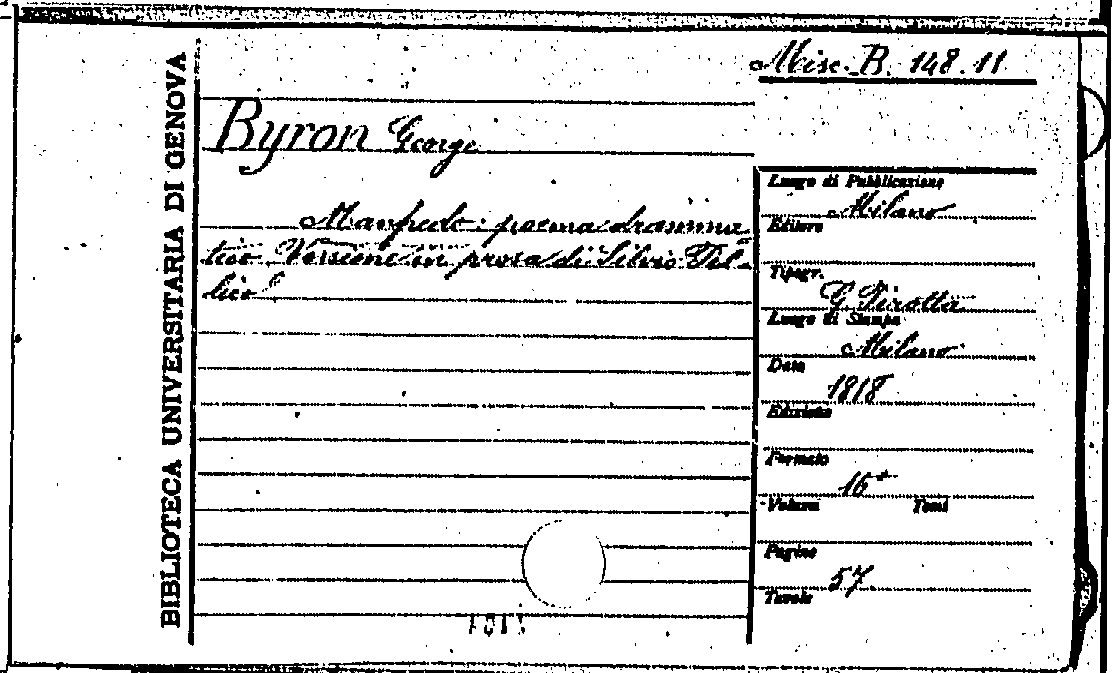 BIBLIOTECA UNIVERSITARIA DI GENOVA
Misc. B. 148.11
Byron George
Manfredo: poema dramma-
tico. Versione in prosa di Silvio Pel-
lico
Luogo di Pubblicazione
Milano
Editore
Tipogr.
G. Pirotta
Luogo di Stampa
Milano
Data
1818
Edizione
Formato
16°
Volumi Tomi
Pagine
57
Tavole